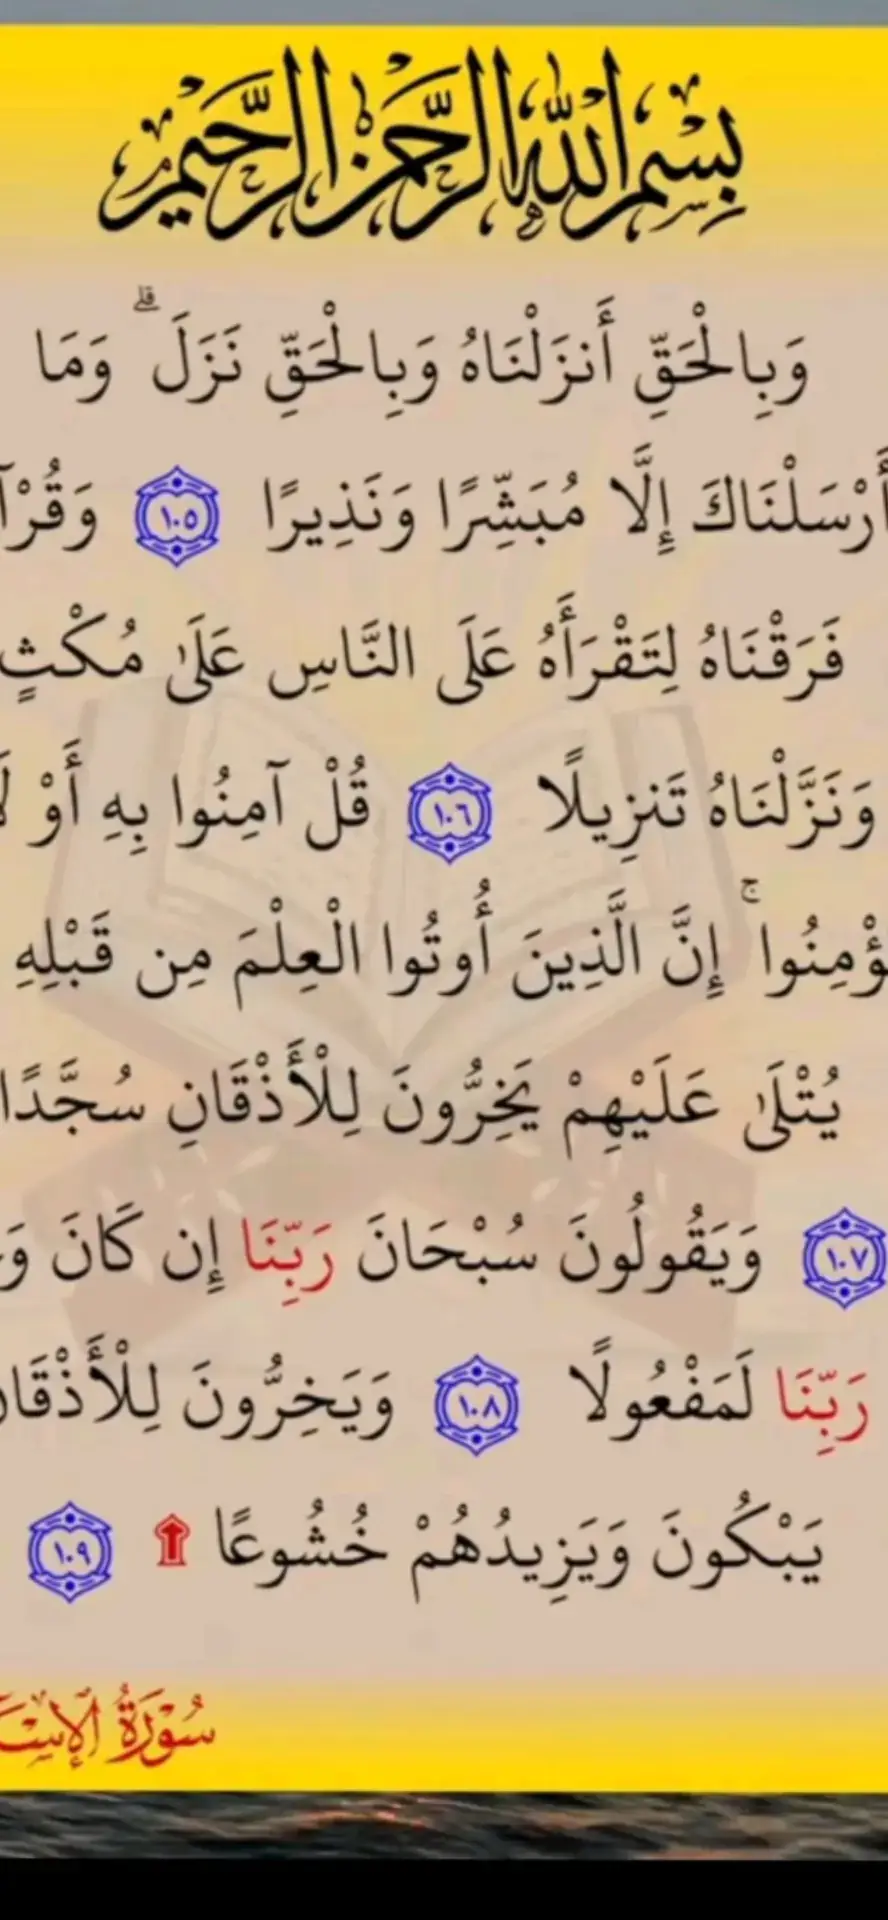 بِسْمِ اللهِ الرَّحْمٰنِ الرَّحِيْمِ
وَبِالْحَقِّ أَنزَلْنَاهُ وَبِالْحَقِّ نَزَلَ ۗ وَمَا
أَرْسَلْنَاكَ إِلَّا مُبَشِّرًا وَنَذِيرًا ١٠٥
فَرَقْنَاهُ لِتَقْرَأَهُ عَلَى النَّاسِ عَلَىٰ مُكْثٍ
وَنَزَّلْنَاهُ تَنزِيلًا ١٠٦ قُلْ آمِنُوا بِهِ أَوْ لَا
ؤْمِنُوا ۚ إِنَّ الَّذِينَ أُوتُوا الْعِلْمَ مِن قَبْلِهِ
يُتْلَىٰ عَلَيْهِمْ يَخِرُّونَ لِلْأَذْقَانِ سُجَّدًا
١٠٧ وَيَقُولُونَ سُبْحَانَ رَبِّنَا إِن كَانَ
رَبِّنَا لَمَفْعُولًا ١٠٨ وَيَخِرُّونَ لِلْأَذْقَا
يَبْكُونَ وَيَزِيدُهُمْ خُشُوعًا ۩ ١٠٩
سُوْرَةُ